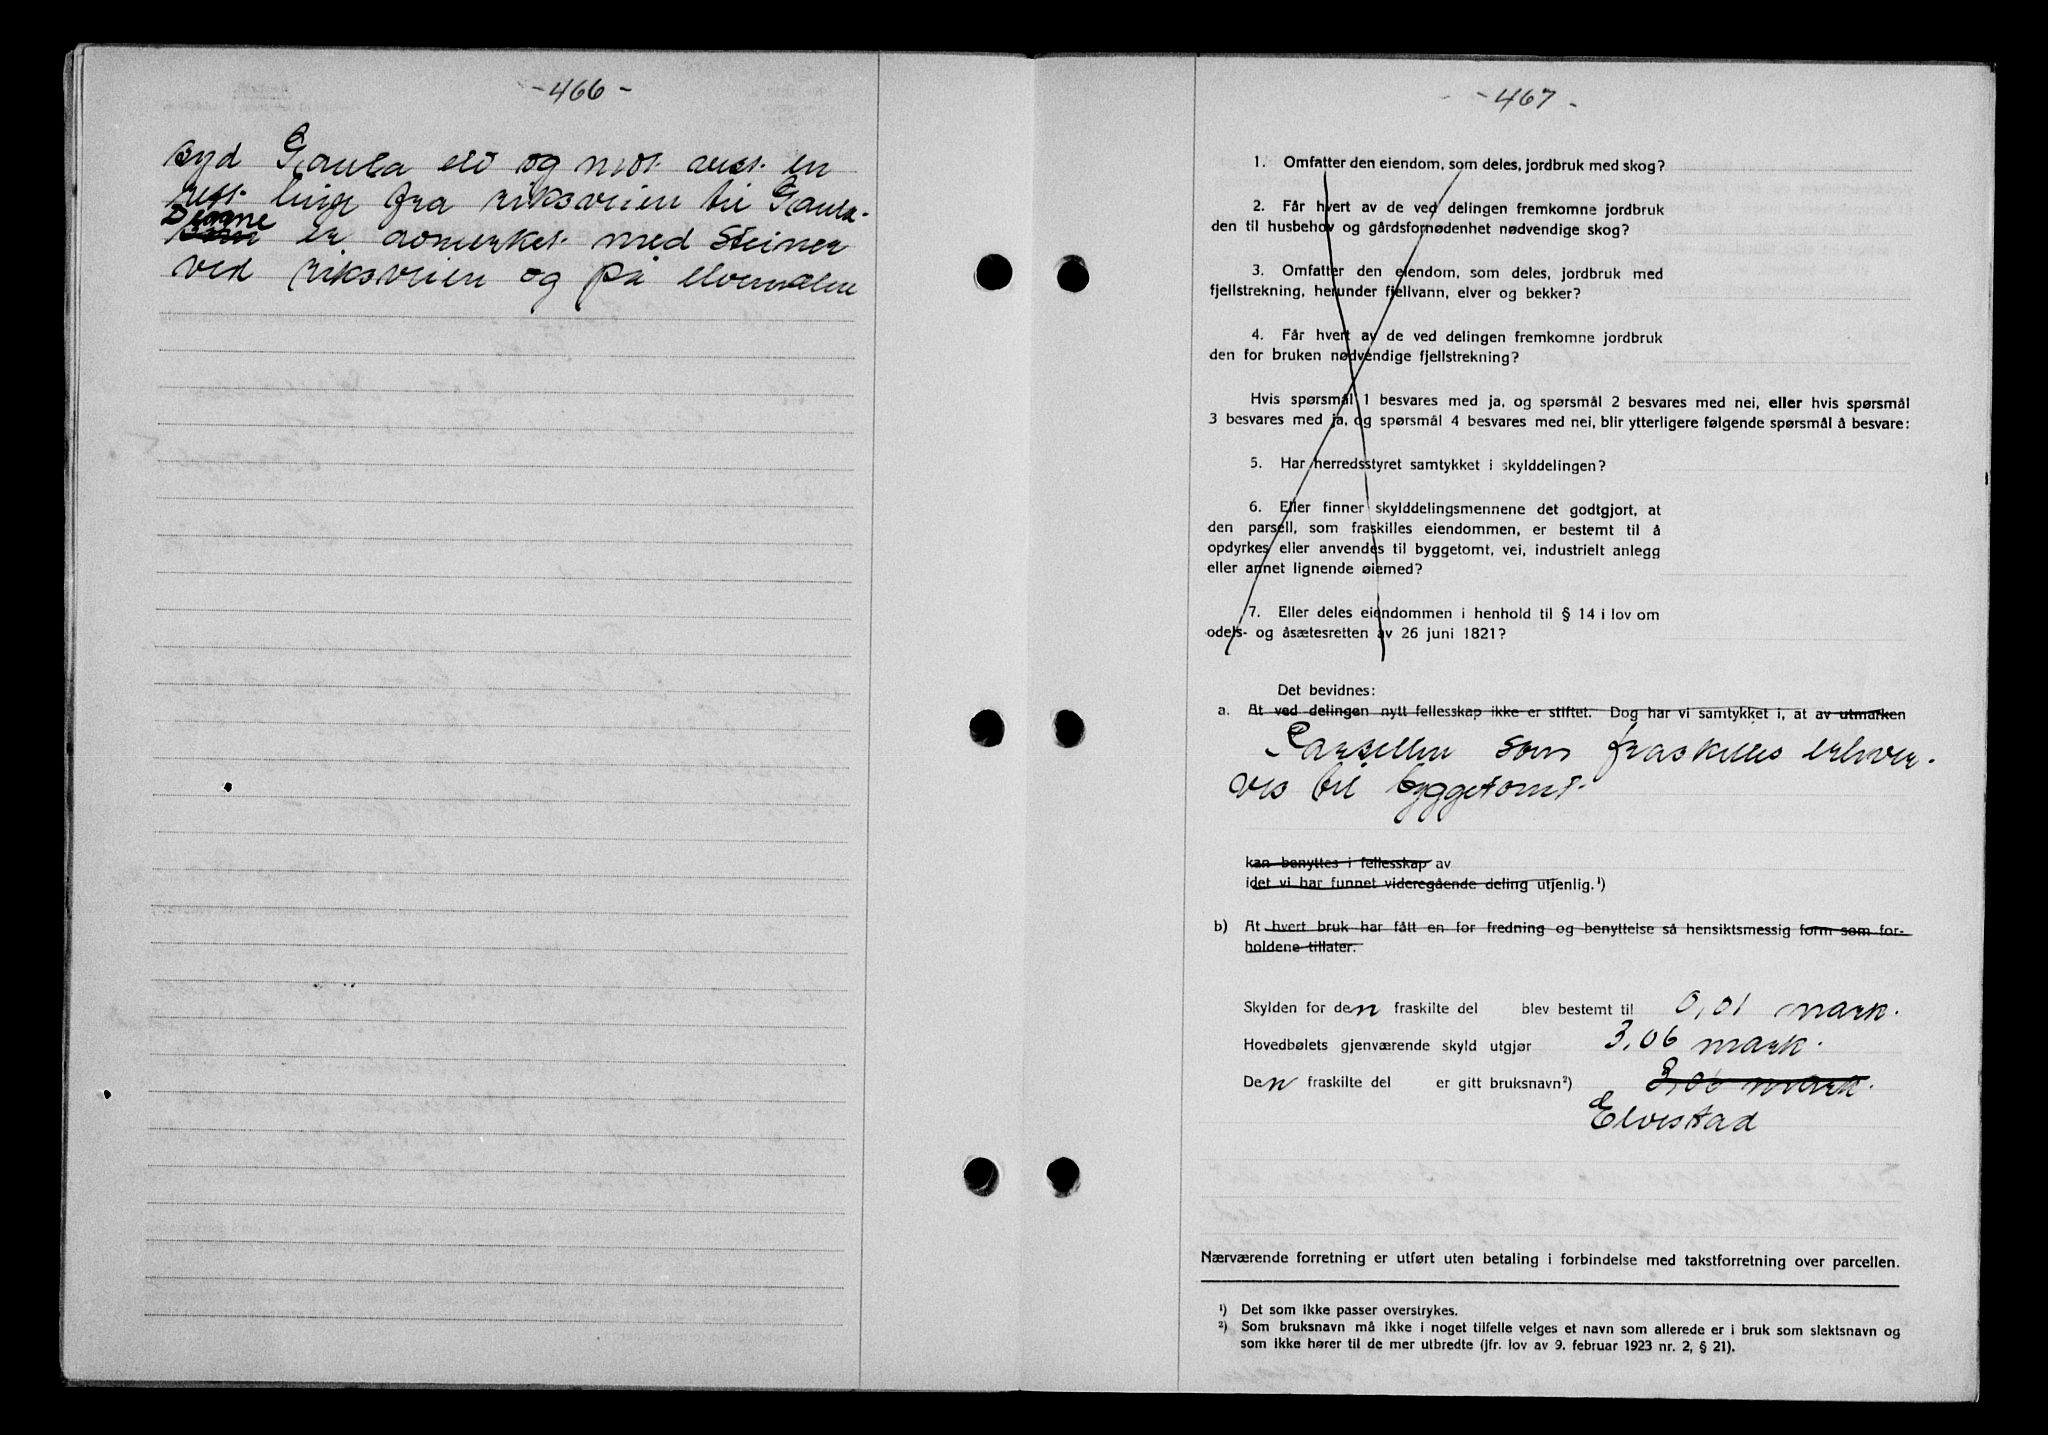 - 466 -
syd Gaula elv og mot vest en
rett linje fra riksveien til Gaula.
Denne er avmerket med steiner
ved riksveien og på elvemælen
- 467 -
1. Omfatter den eiendom, som deles, jordbruk med skog?
2. Får hvert av de ved delingen fremkomne jordbruk
den til husbehov og gårdsfornødenhet nødvendige skog?
3. Omfatter den eiendom, som deles, jordbruk med
fjellstrekning, herunder fjellvann, elver og bekker?
4. Får hvert av de ved delingen fremkomne jordbruk
den for bruken nødvendige fjellstrekning?
Hvis spørsmål 1 besvares med ja, og spørsmål 2 besvares med nei, eller hvis spørsmål
3 besvares med ja, og spørsmål 4 besvares med nei, blir ytterligere følgende spørsmål å besvare:
5. Har herredsstyret samtykket i skylddelingen?
6. Eller finner skylddelingsmennene det godtgjort, at
den parsell, som fraskilles eiendommen, er bestemt til å
opdyrkes eller anvendes til byggetomt, vei, industrielt anlegg
eller annet lignende øiemed?
7. Eller deles eiendommen i henhold til § 14 i lov om
odels- og åsætesretten av 26 juni 1821?
Det bevidnes:
a. At ved delingen nytt fellesskap ikke er stiftet. Dog har vi samtykket i, at av utmarken
Parsellen som fraskilles erhver-
ves til byggetomt.
kan benyttes i fellesskap av
idet vi har funnet videregående deling utjenlig.¹)
b) At hvert bruk har fått en for fredning og benyttelse så hensiktsmessig form som for-
holdene tillater.
Skylden for den fraskilte del blev bestemt til 0,01 mark.
Hovedbølets gjenværende skyld utgjør 3,06 mark.
Den fraskilte del er gitt bruksnavn²) 3,06 mark.
Elvestad
Nærværende forretning er utført uten betaling i forbindelse med takstforretning over parcellen.
¹) Det som ikke passer overstrykes.
²) Som bruksnavn må ikke i noget tilfelle velges et navn som allerede er i bruk som slektsnavn og
som ikke hører til de mer utbredte (jfr. lov av 9. februar 1923 nr. 2, § 21).